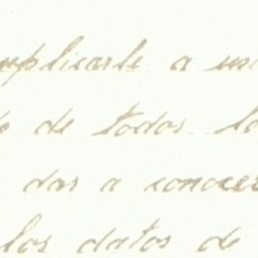 suplicarle a
de todos
dar a conocer
los datos de